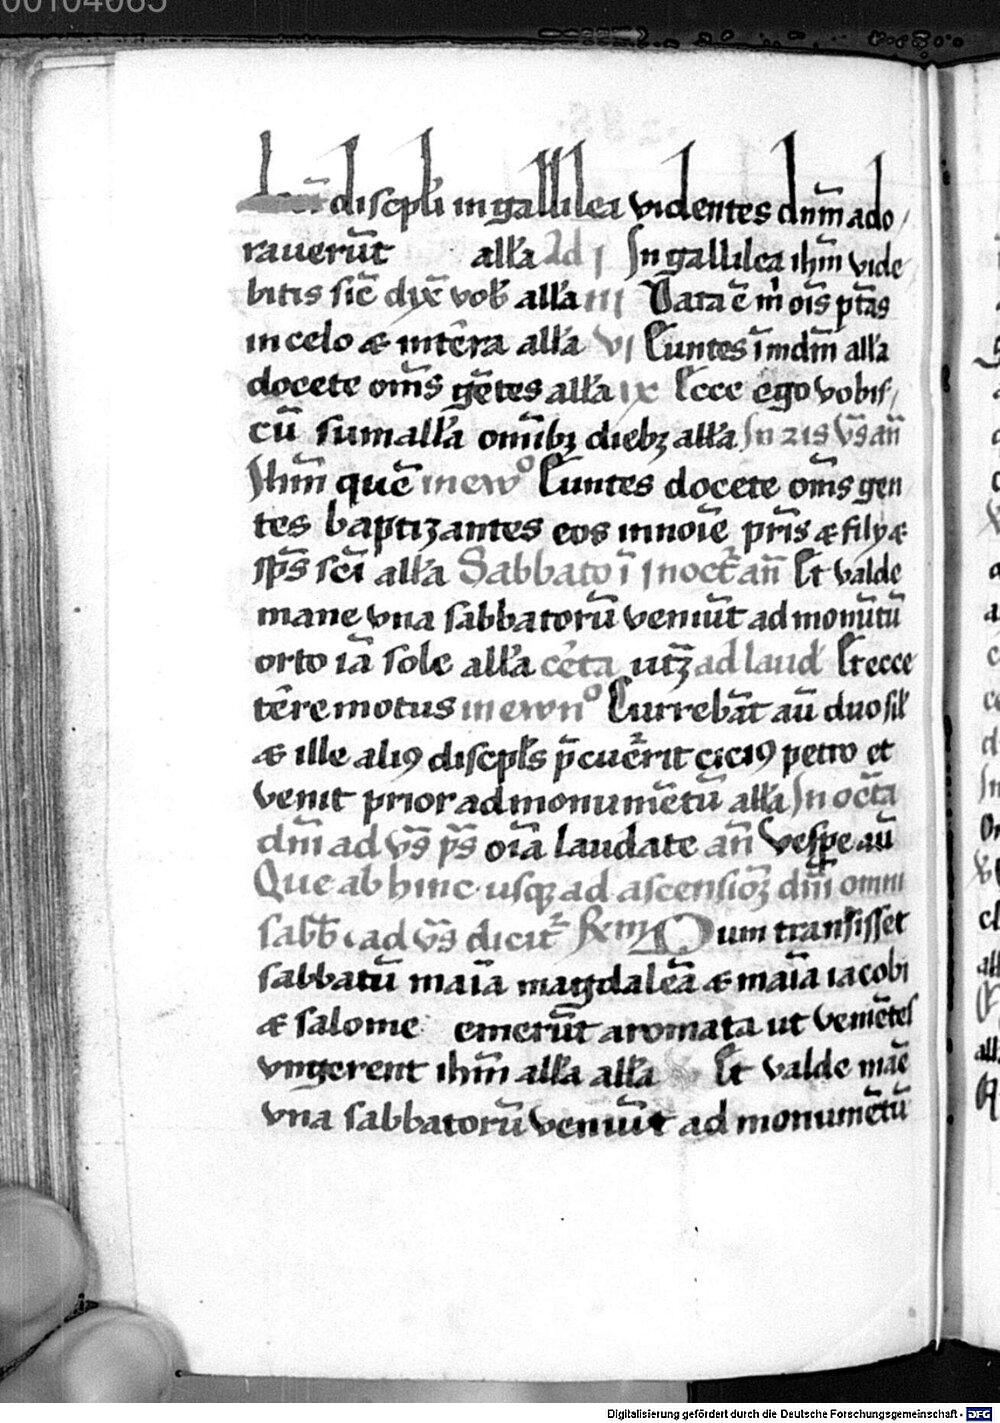 00104065
discpl̄i in gallilea videntes dn̄m ado
raverūt all̄a ad j In gallilea ih̄m vide
bitis sic̄ dix̄ vob̄ all̄a iii Data ē m̄ om̄s pt̄as
in celo & in t̄erra all̄a vj Euntes ī mdm̄ all̄a
docete om̄s gētes all̄a ix Ecce ego vobis
cū sum all̄a omībꝫ diebꝫ all̄a In 2is v̄s an̄
Ih̄m quē in ew̄o Euntes docete om̄s gen
tes baptizantes eos in noīe pr̄is & filij &
sp̄s sc̄i all̄a Sabbato ī j noct̄ an̄ Et valde
mane vna sabbatorū veniūt ad monūtū
orto iā sole all̄a cēta utꝫ ad laud̄ Et ecce
t̄erremotus in ewn̄o Currebāt aū duo sil̄
& ille aliꝯ discpl̄s p̄cucr̄rit ciciꝯ petro et
venit prior ad monumētū all̄a In oct̄a
dn̄i ad v̄s p̄s oīa laudate an̄ Vespe aū
Que ab hinc usqꝫ ad ascensioꝫ dn̄i omni
sabb̄ ad v̄s dicit᷑ Rm̄ Dum transisset
sabbatū maīa magdalēa & maīa iacobi
& salome emerūt aromata ut veniētes
vngerent ih̄m all̄a all̄a Et valde māe
vna sabbatorū veniūt ad monumētū
Digitalisierung gefördert durch die Deutsche Forschungsgemeinschaft - DFG